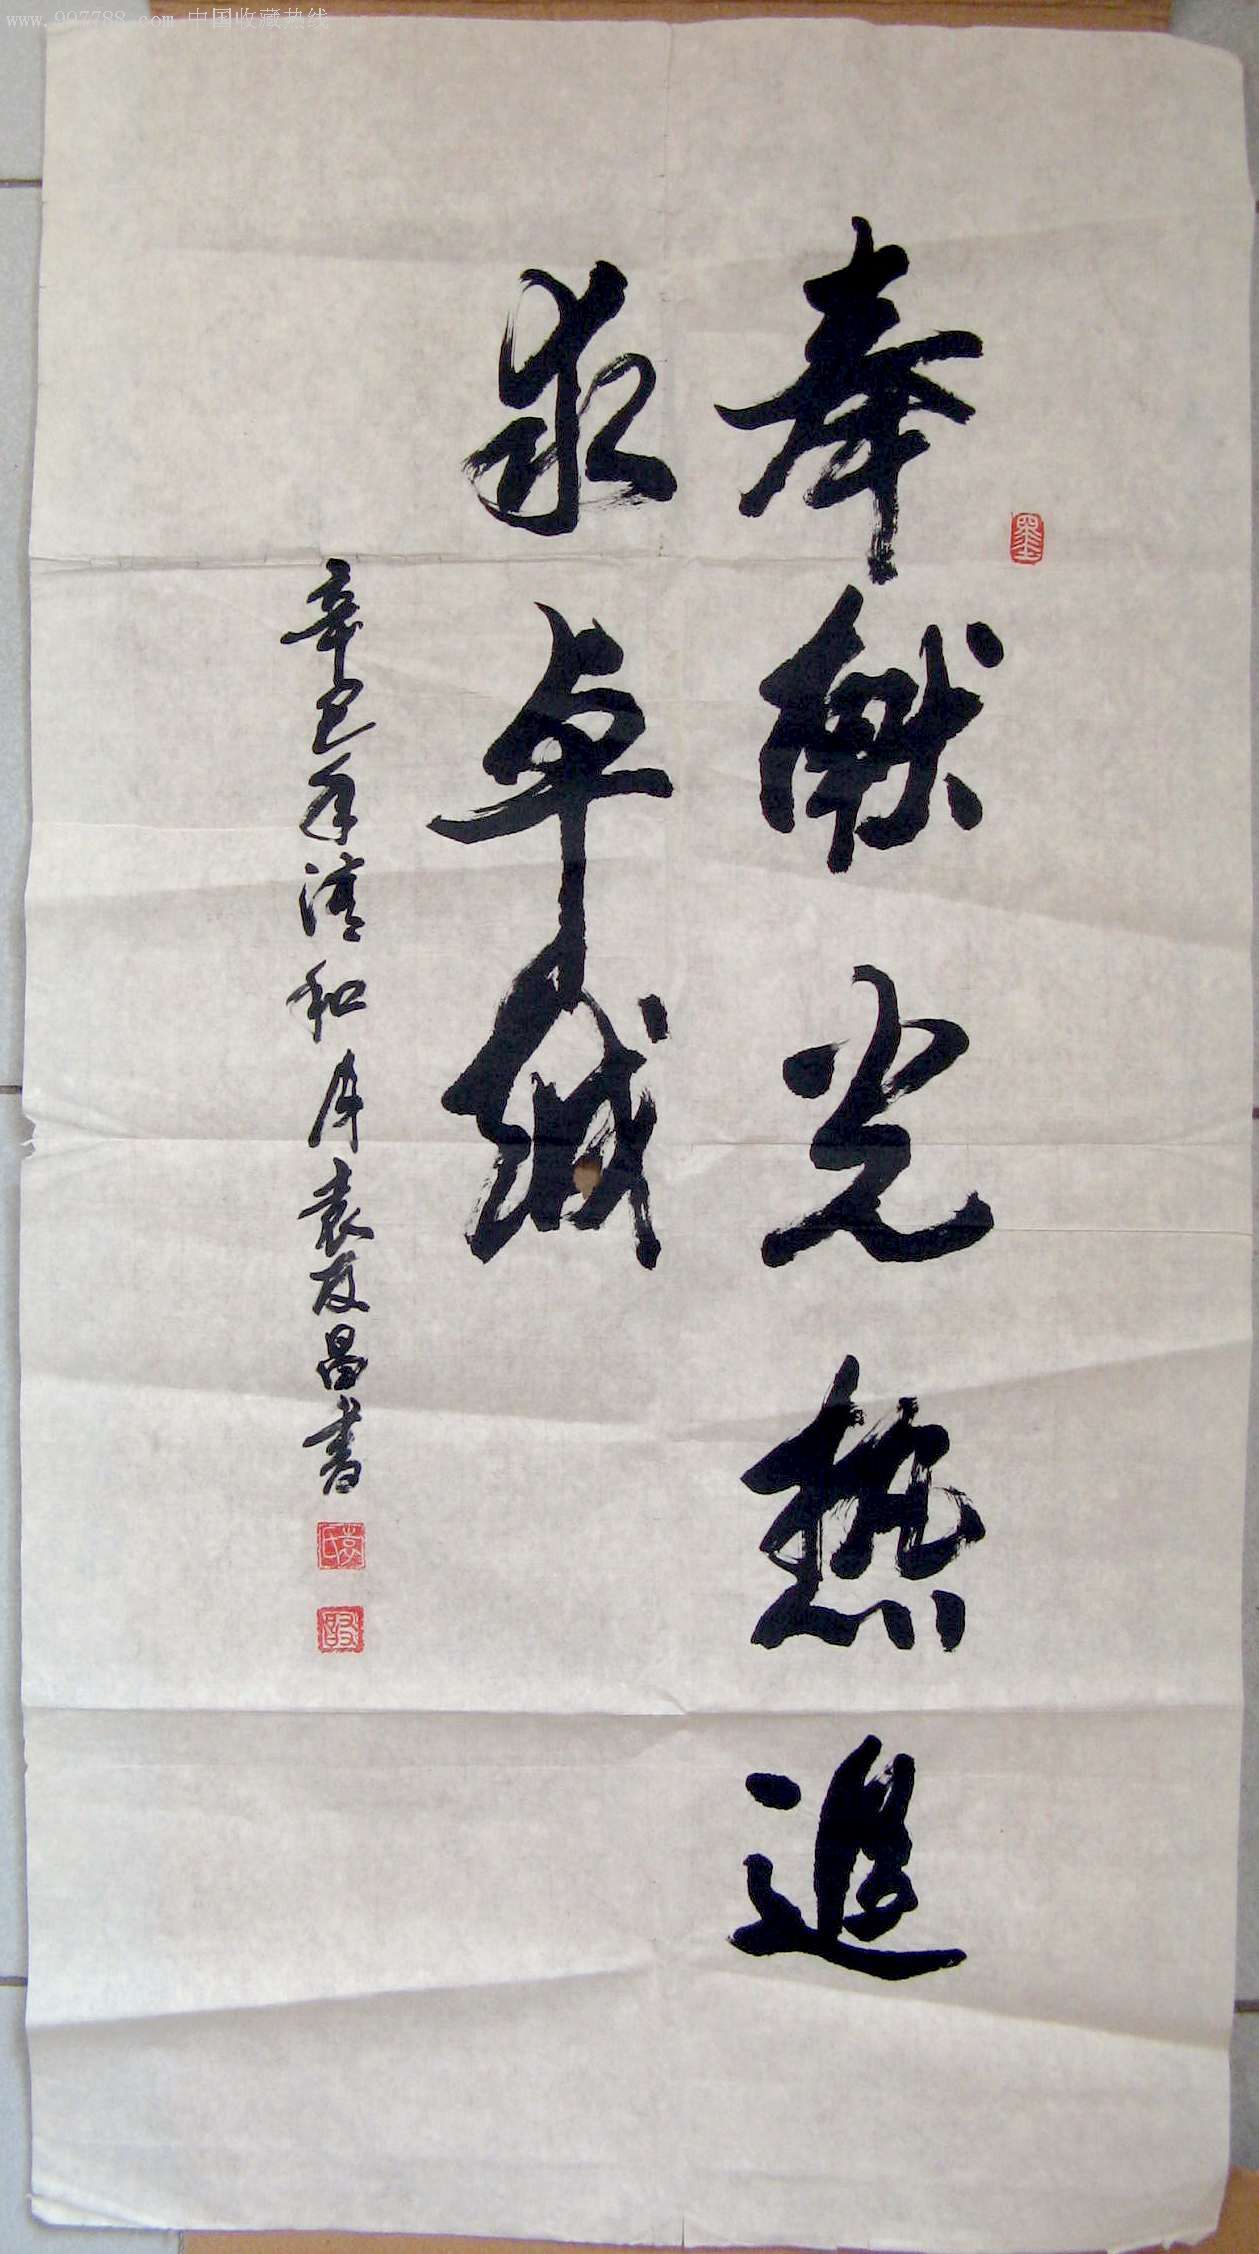 www.997788.com 中国收藏热线
奉献光热追
求卓越
辛巳年清和月袁友昌书
墨